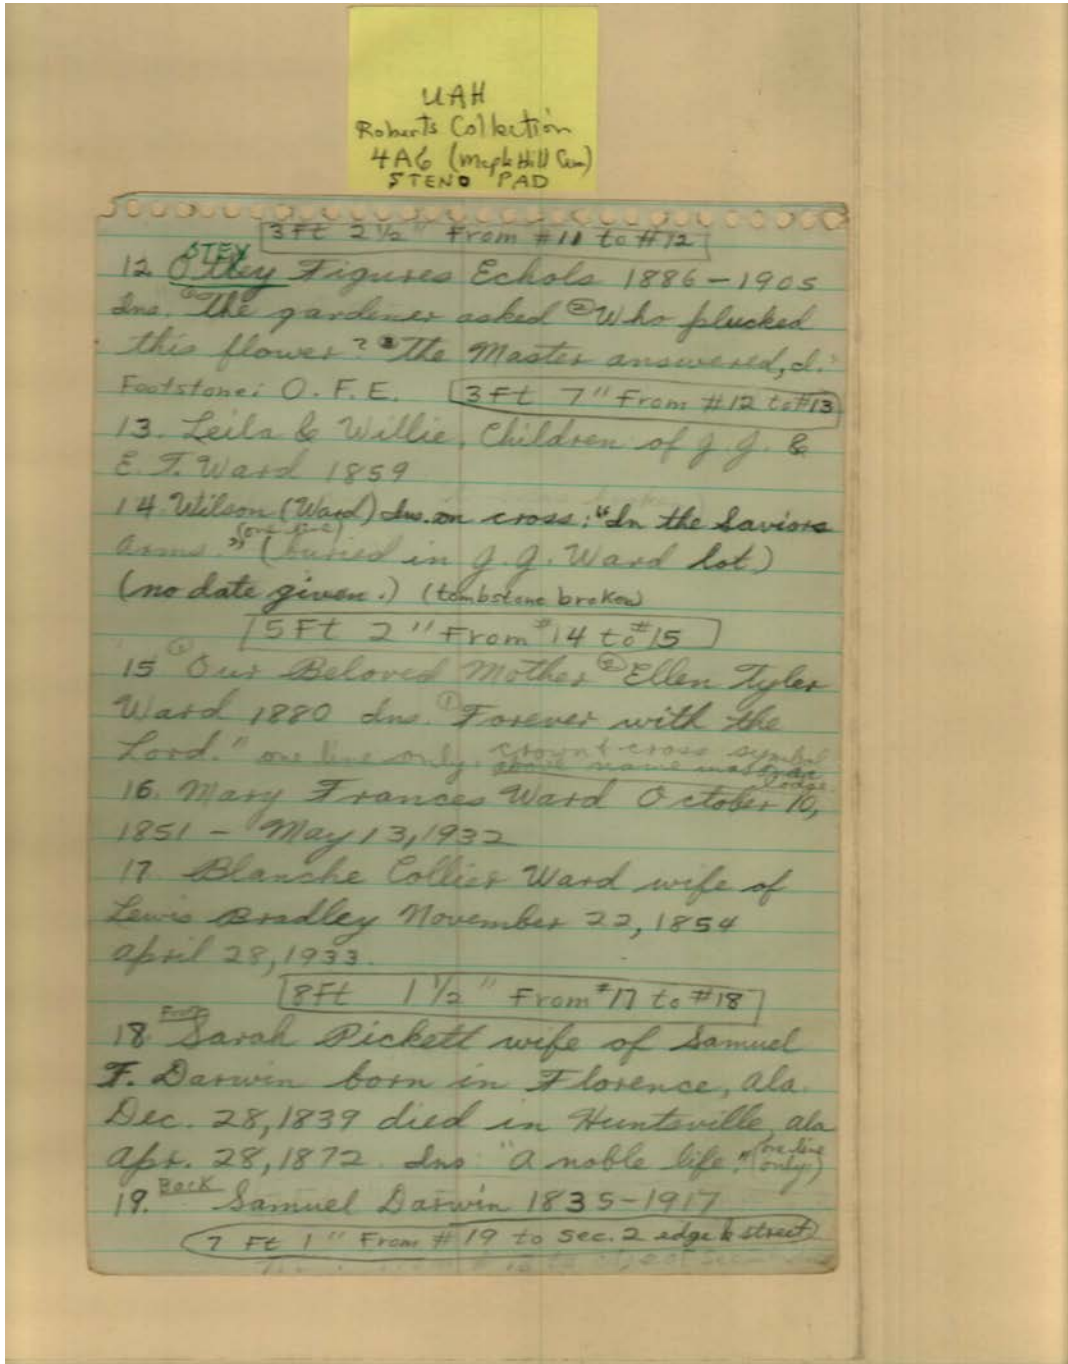 UAH
Roberts Collection
4A6 (Maple Hill Cem)
STENO PAD
3 Ft 2 ½" From #11 to #12
STEY
12 Ottey Figures Echols 1886-1905
Ins. "The gardener asked ② Who plucked
this flower? ③ The Master answered, I."
Footstone: O. F. E. 3 Ft 7" From #12 to #13
13. Leila & Willie, Children of J. J. &
E. T. Ward 1859
14. Wilson (Ward) Ins. on cross: "In the Saviors
(one line)
arms." (buried in J. J. Ward lot)
(no date given.) (tombstone broken)
5 Ft 2" From #14 to #15
15 ① Our Beloved Mother ② Ellen Tyler
Ward 1880 Ins. ① "Forever with the
Lord." one line only. crown & cross symbol
above name
lodge
16. Mary Frances Ward October 10,
1851 - May 13, 1932
17. Blanche Collier Ward wife of
Lewis Bradley November 22, 1854
April 28, 1933.
8 Ft 1 ½" From #17 to #18
18. Front Sarah Pickett wife of Samuel
F. Darwin born in Florence, Ala.
Dec. 28, 1839 died in Huntsville, Ala
Apr. 28, 1872. Ins: "A noble life." (one line
only)
19. Back Samuel Darwin 1835-1917
7 Ft 1" From #19 to Sec. 2 edge & street